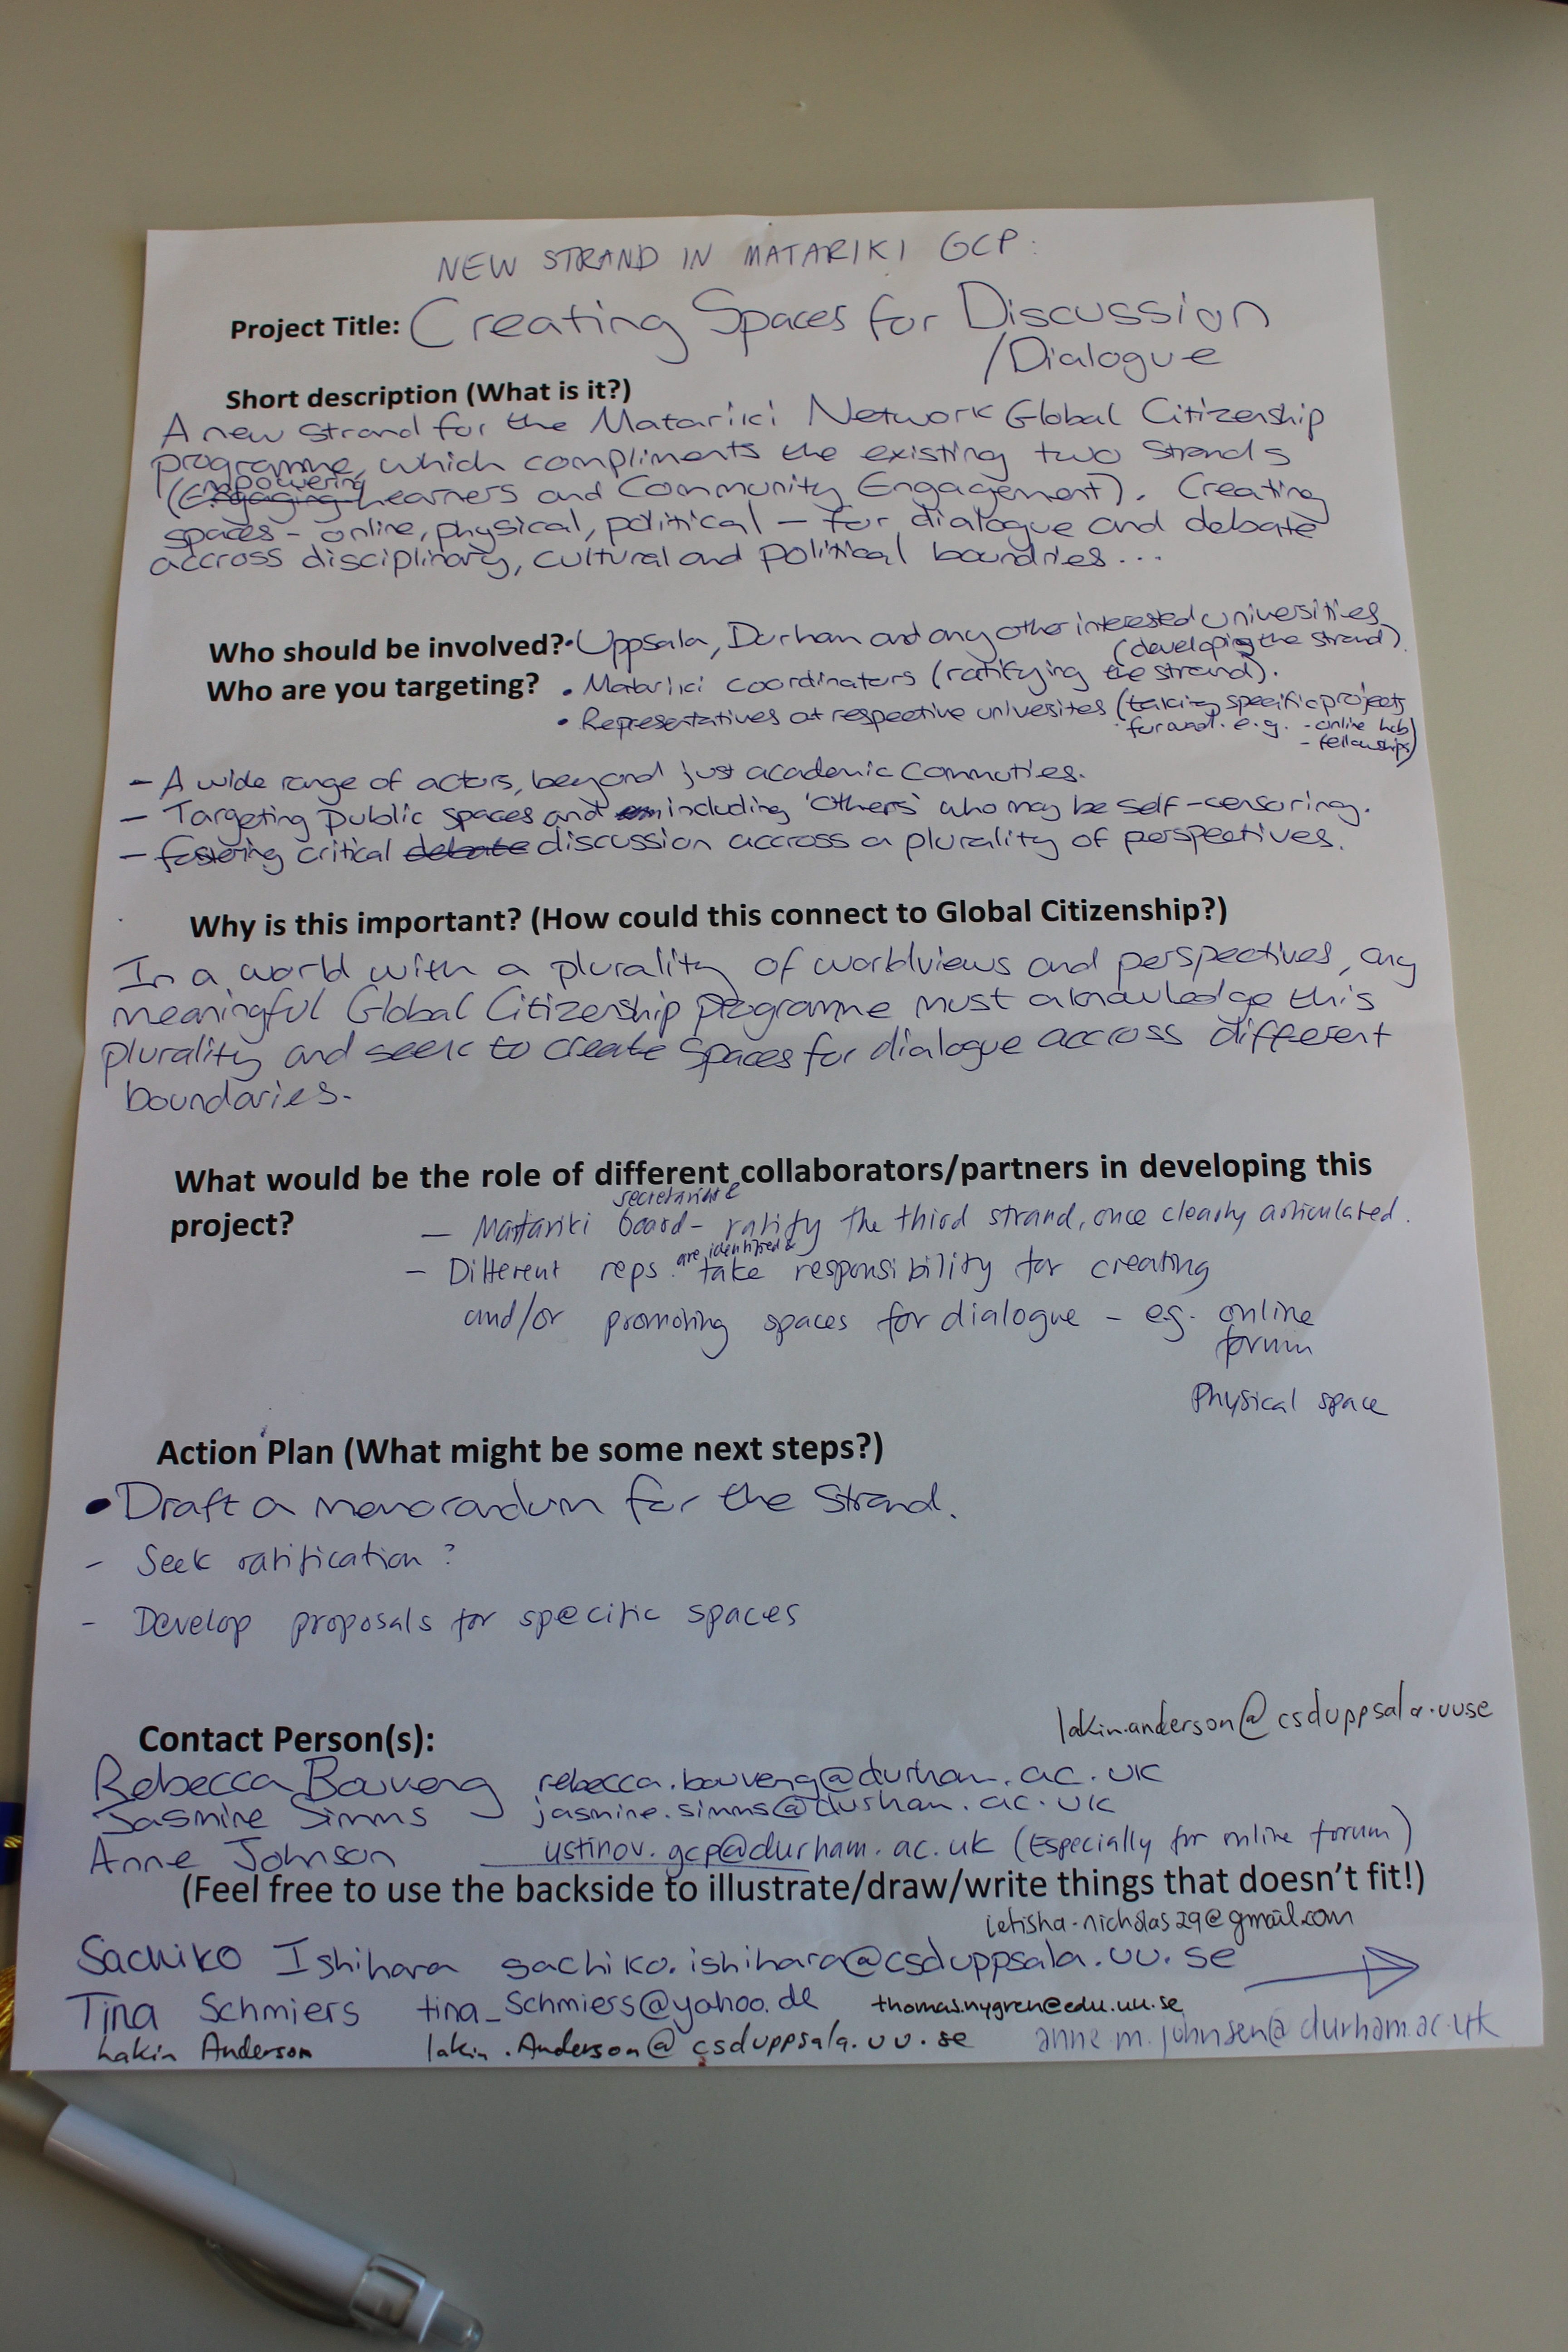 NEW STRAND IN MATARIKI GCP:
Project Title: Creating Spaces for Discussion
/Dialogue
Short description (What is it?)
A new strand for the Matariki Network Global Citizenship
programme, which compliments the existing two strands
(Empowering Learners and Community Engagement). Creating
spaces - online, physical, political - for dialogue and debate
accross disciplinary, cultural and political boundries...
Who should be involved? • Uppsala, Durham and any other interested universities
(developing the strand).
Who are you targeting? • Matariki coordinators (ratifying the strand).
• Representatives at respective universites (taking specific projects
forward. e.g. - online hub
- fellowships)
- A wide range of actors, beyond just academic commuties.
- Targeting public spaces and including 'others' who may be self-censoring.
- fostering critical debate discussion accross a plurality of perspectives.
Why is this important? (How could this connect to Global Citizenship?)
In a world with a plurality of worldviews and perspectives, any
meaningful Global Citizenship programme must aknowledge this
plurality and seek to create spaces for dialogue accross different
boundaries.
What would be the role of different collaborators/partners in developing this
project?
secretariat &
- Matariki board - ratify the third strand, once clearly articulated.
are identified &
- Different reps. take responsibility for creating
and/or promoting spaces for dialogue - e.g. online
forum
Physical space
Action Plan (What might be some next steps?)
• Draft a memorandum for the strand.
- Seek ratification?
- Develop proposals for specific spaces
lakin.anderson@csduppsala.uuse
Contact Person(s):
Rebecca Bouveng rebecca.bouveng@durham.ac.uk
Jasmine Simms jasmine.simms@durham.ac.uk
Anne Johnson ustinov.gcp@durham.ac.uk (Especially for online forum)
(Feel free to use the backside to illustrate/draw/write things that doesn't fit!)
letisha-nicholas29@gmail.com
Sachiko Ishihara sachiko.ishihara@csduppsala.uu.se
Tina Schmiers tina_schmiers@yahoo.de thomas.nygren@edu.uu.se
Lakin Anderson lakin.Anderson@csduppsala.uu.se anne.m.johnsen@durham.ac.uk